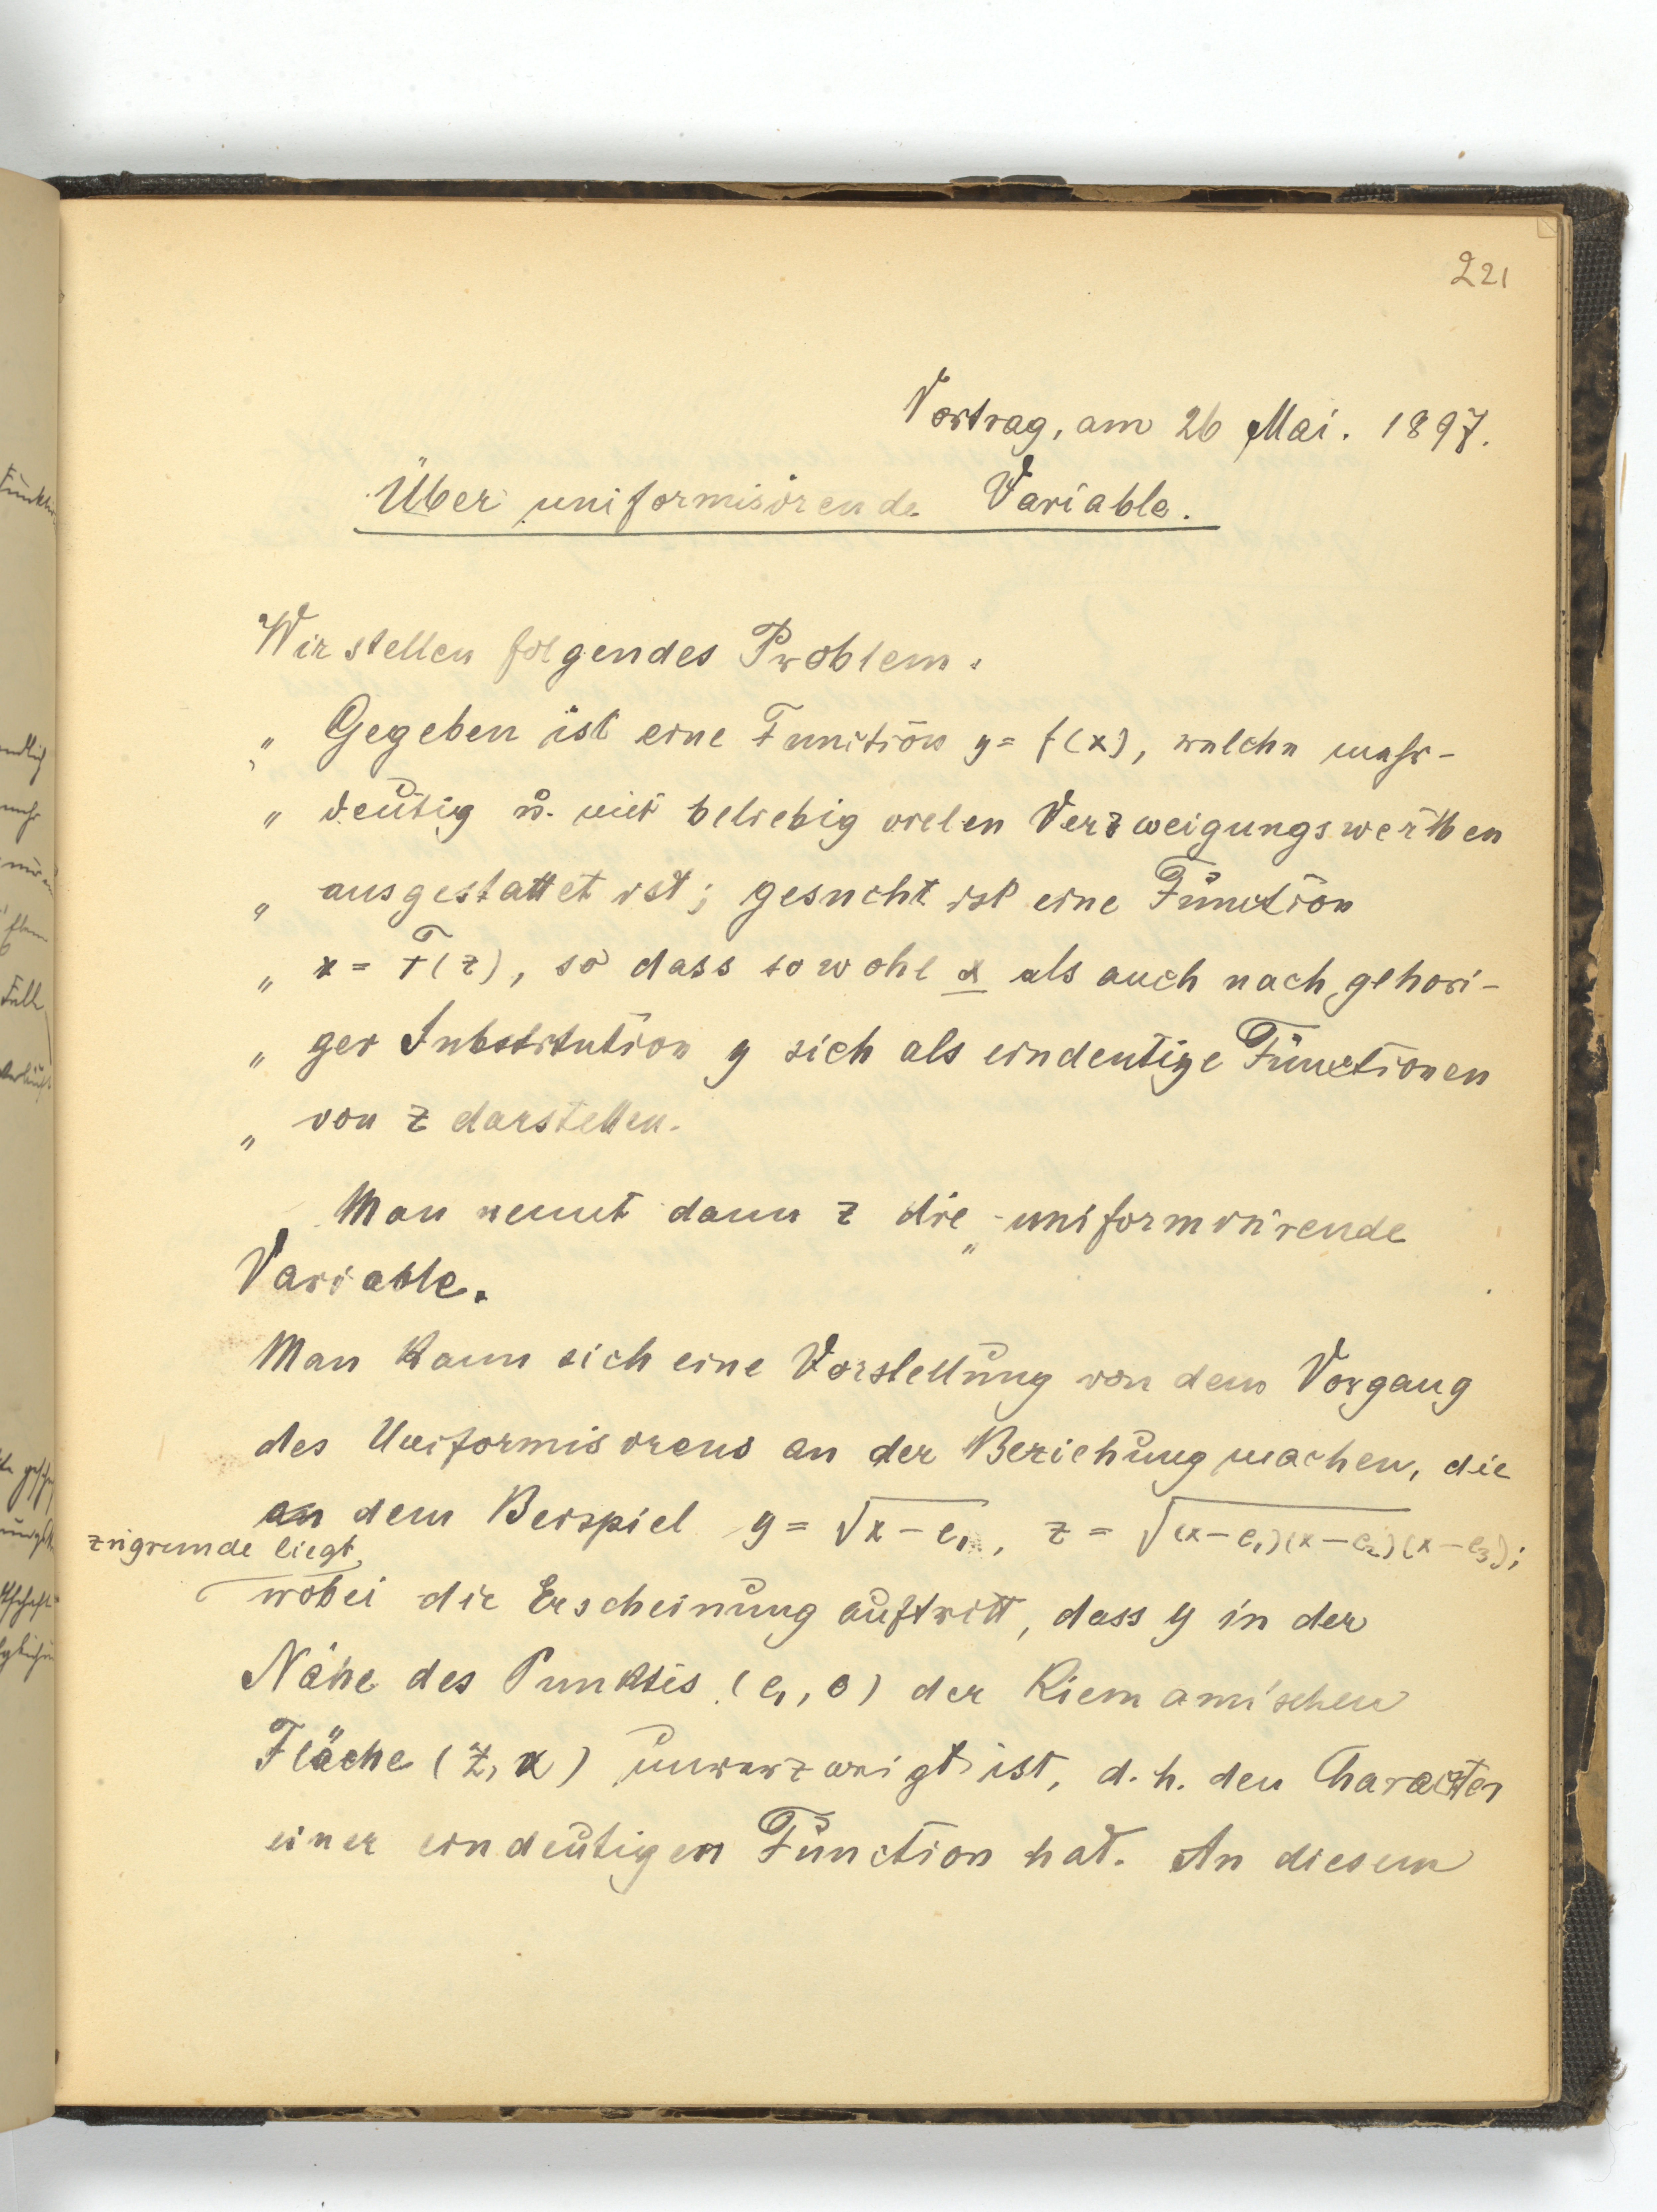 221
Vortrag, am 26 Mai. 1897.
Über uniformisirende Variable.
Wir stellen folgendes Problem.
„ Gegeben ist eine Function y = f(x), welche mehr-
„ deutig u. mit beliebig vielen Verzweigungswerthen
„ ausgestattet ist; gesucht ist eine Function
„ x = F(z), so dass sowohl x als auch nach gehori-
„ ger Substitution y sich als eindeutige Functionen
„ von z darstellen.
Man nennt dann z die „uniformisirende
Variable.
Man kann sich eine Vorstellung von dem Vorgang
des Uniformisirens an der Beziehung machen, die
an dem Beispiel y = √x − e₁, z = √(x − e₁)(x − e₂)(x − e₃);
zugrunde liegt,
wobei die Erscheinung auftritt, dass y in der
Nähe des Punktes (e₁, 0) der Riemannischen
Fläche (z, x) unverzweigt ist, d. h. den Character
einer eindeutigen Function hat. An diesem